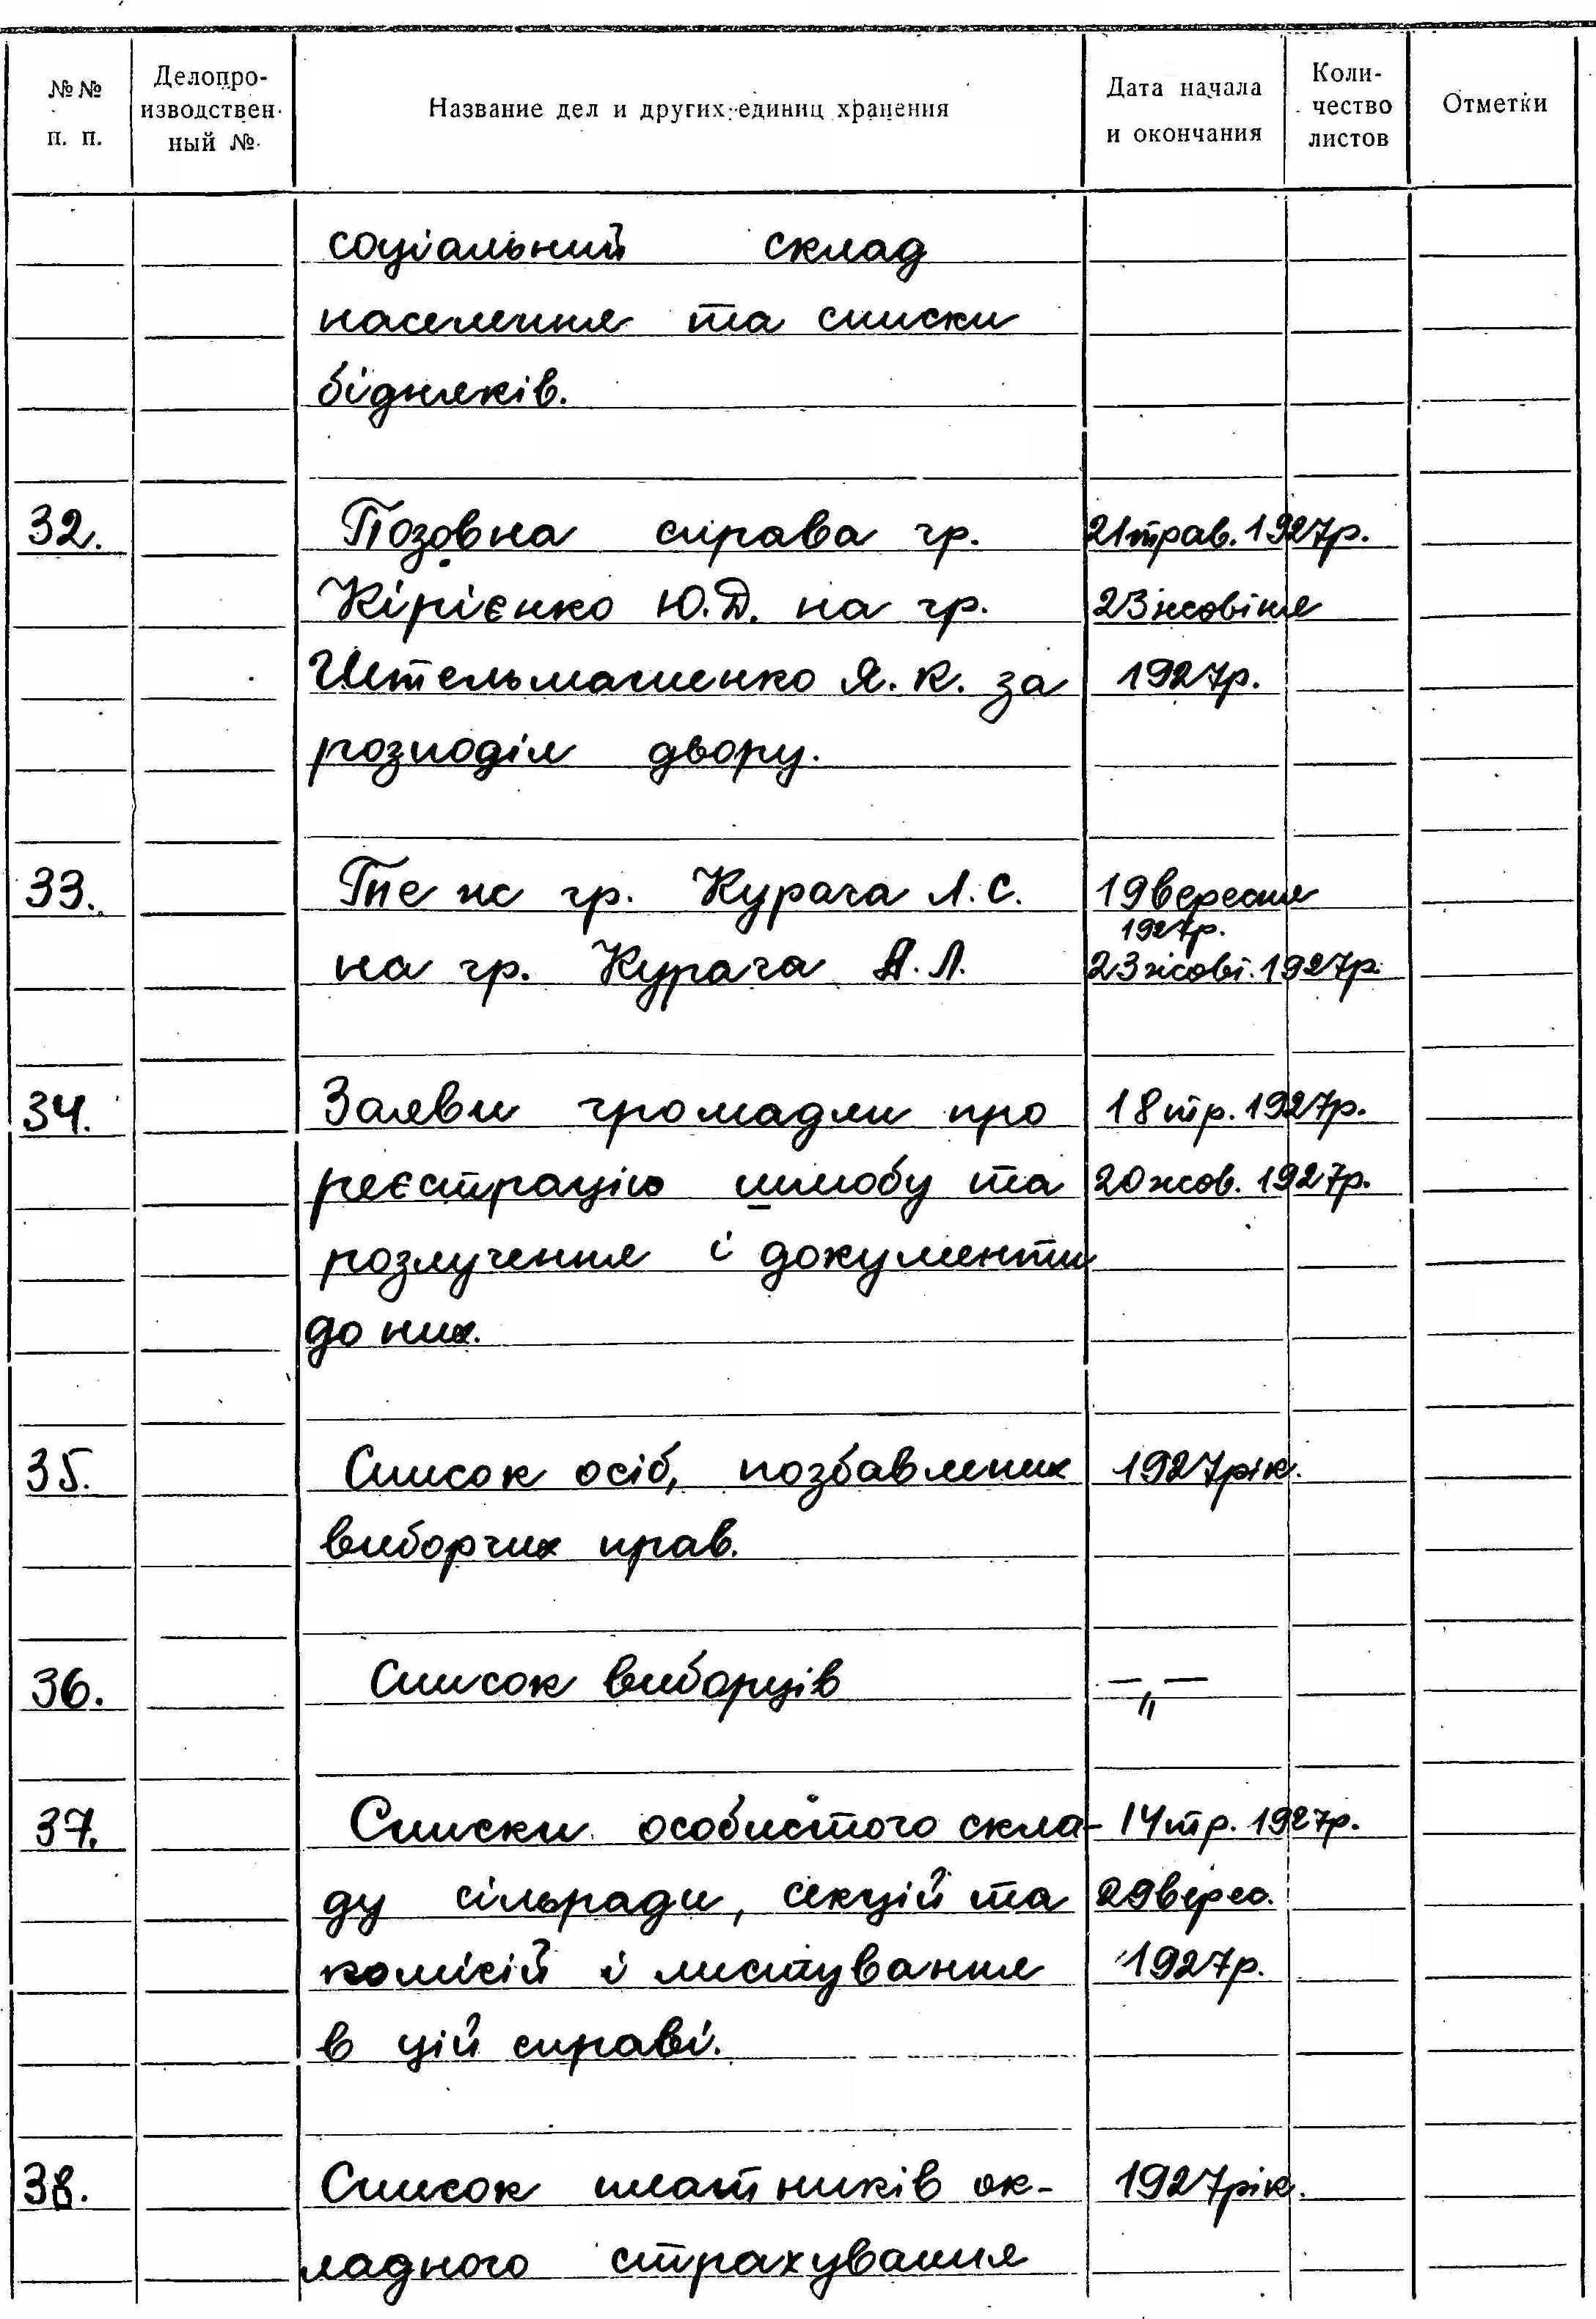 №№ п. п.
Делопроизводственный №
Название дел и других единиц хранения
Дата начала и окончания
Количество листов
Отметки
соціальний склад
населення та списки
бідняків.
32. Позовна справа гр. 21 трав. 1927р.
Кірієнко Ю.Д. на гр. 23 жовтня
Штельмашенко Я. К. за 1927р.
розподіл двору.
33. Те ж гр. Курача Л.С. 19 вересня
1927р.
на гр. Курача А.Л. 23 жовт. 1927р.
34. Заяви громадян про 18 тр. 1927р.
реєстрацію шлюбу та 20 жов. 1927р.
розлучення і документи
до них.
35. Список осіб, позбавлених 1927 рік.
виборчих прав.
36. Список виборців —„—
37. Списки особистого скла- 14 тр. 1927р.
ду сільради, секцій та 29 верес.
комісій і листування 1927р.
в цій справі.
38. Список платників ок- 1927 рік.
ладного страхування